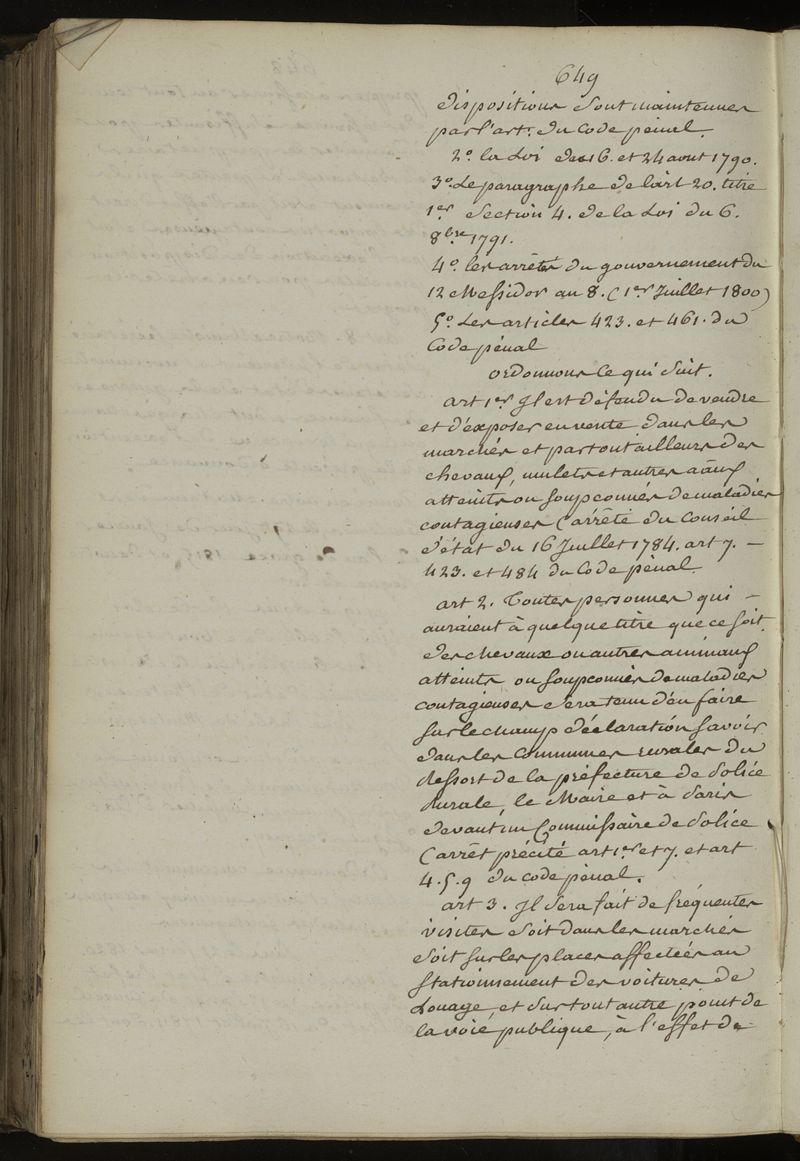 649
dispositions sont maintenues
par l'art. du Code pénal.
2º. la Loi des 16. et 24 aout 1790.
3º. Le paragraphe de l'art 20. titre
1er Section 4. de la Loi du 6.
8bre 1791.
4º. les arrêtés du gouvernement du
12 Messidor an 8. (1er Juillet 1800)
5º. Les articles 423. et 461. du
Code pénal
ordonnons ce qui suit.
art 1er Il est défendu de vendre
et d'éxposer en vente dans les
marchés et partout ailleurs des
chevaux, mulets et autres aãux
atteints ou soupconnés de maladies
contagieuses (arrêté du Conseil
d'état du 16 Juillet 1784. art 7. –
423. et 484 du Code pénal.
art 2. Toutes personnes qui –
auraient à quelque titre que ce soit
des chevaux ou autres animaux
atteints ou soupconnés de maladies
contagieuses sera tenu d'en faire
sur le champ déclaration savoir
dans les Communes rurales du
Ressort de la préfecture de Police
rurale, le Maire et à Paris
devant un Commissaire de Police
(arrêt précité art 1er et 7. et art
4. 5. 9 du code pénal.
art 3. Il sera fait de fréquentes
visites soit dans les marchés
soit sur les places affectées au
stationnement des voitures de
Louage, et sur tout autre point de
la voie publique, à l'effet de